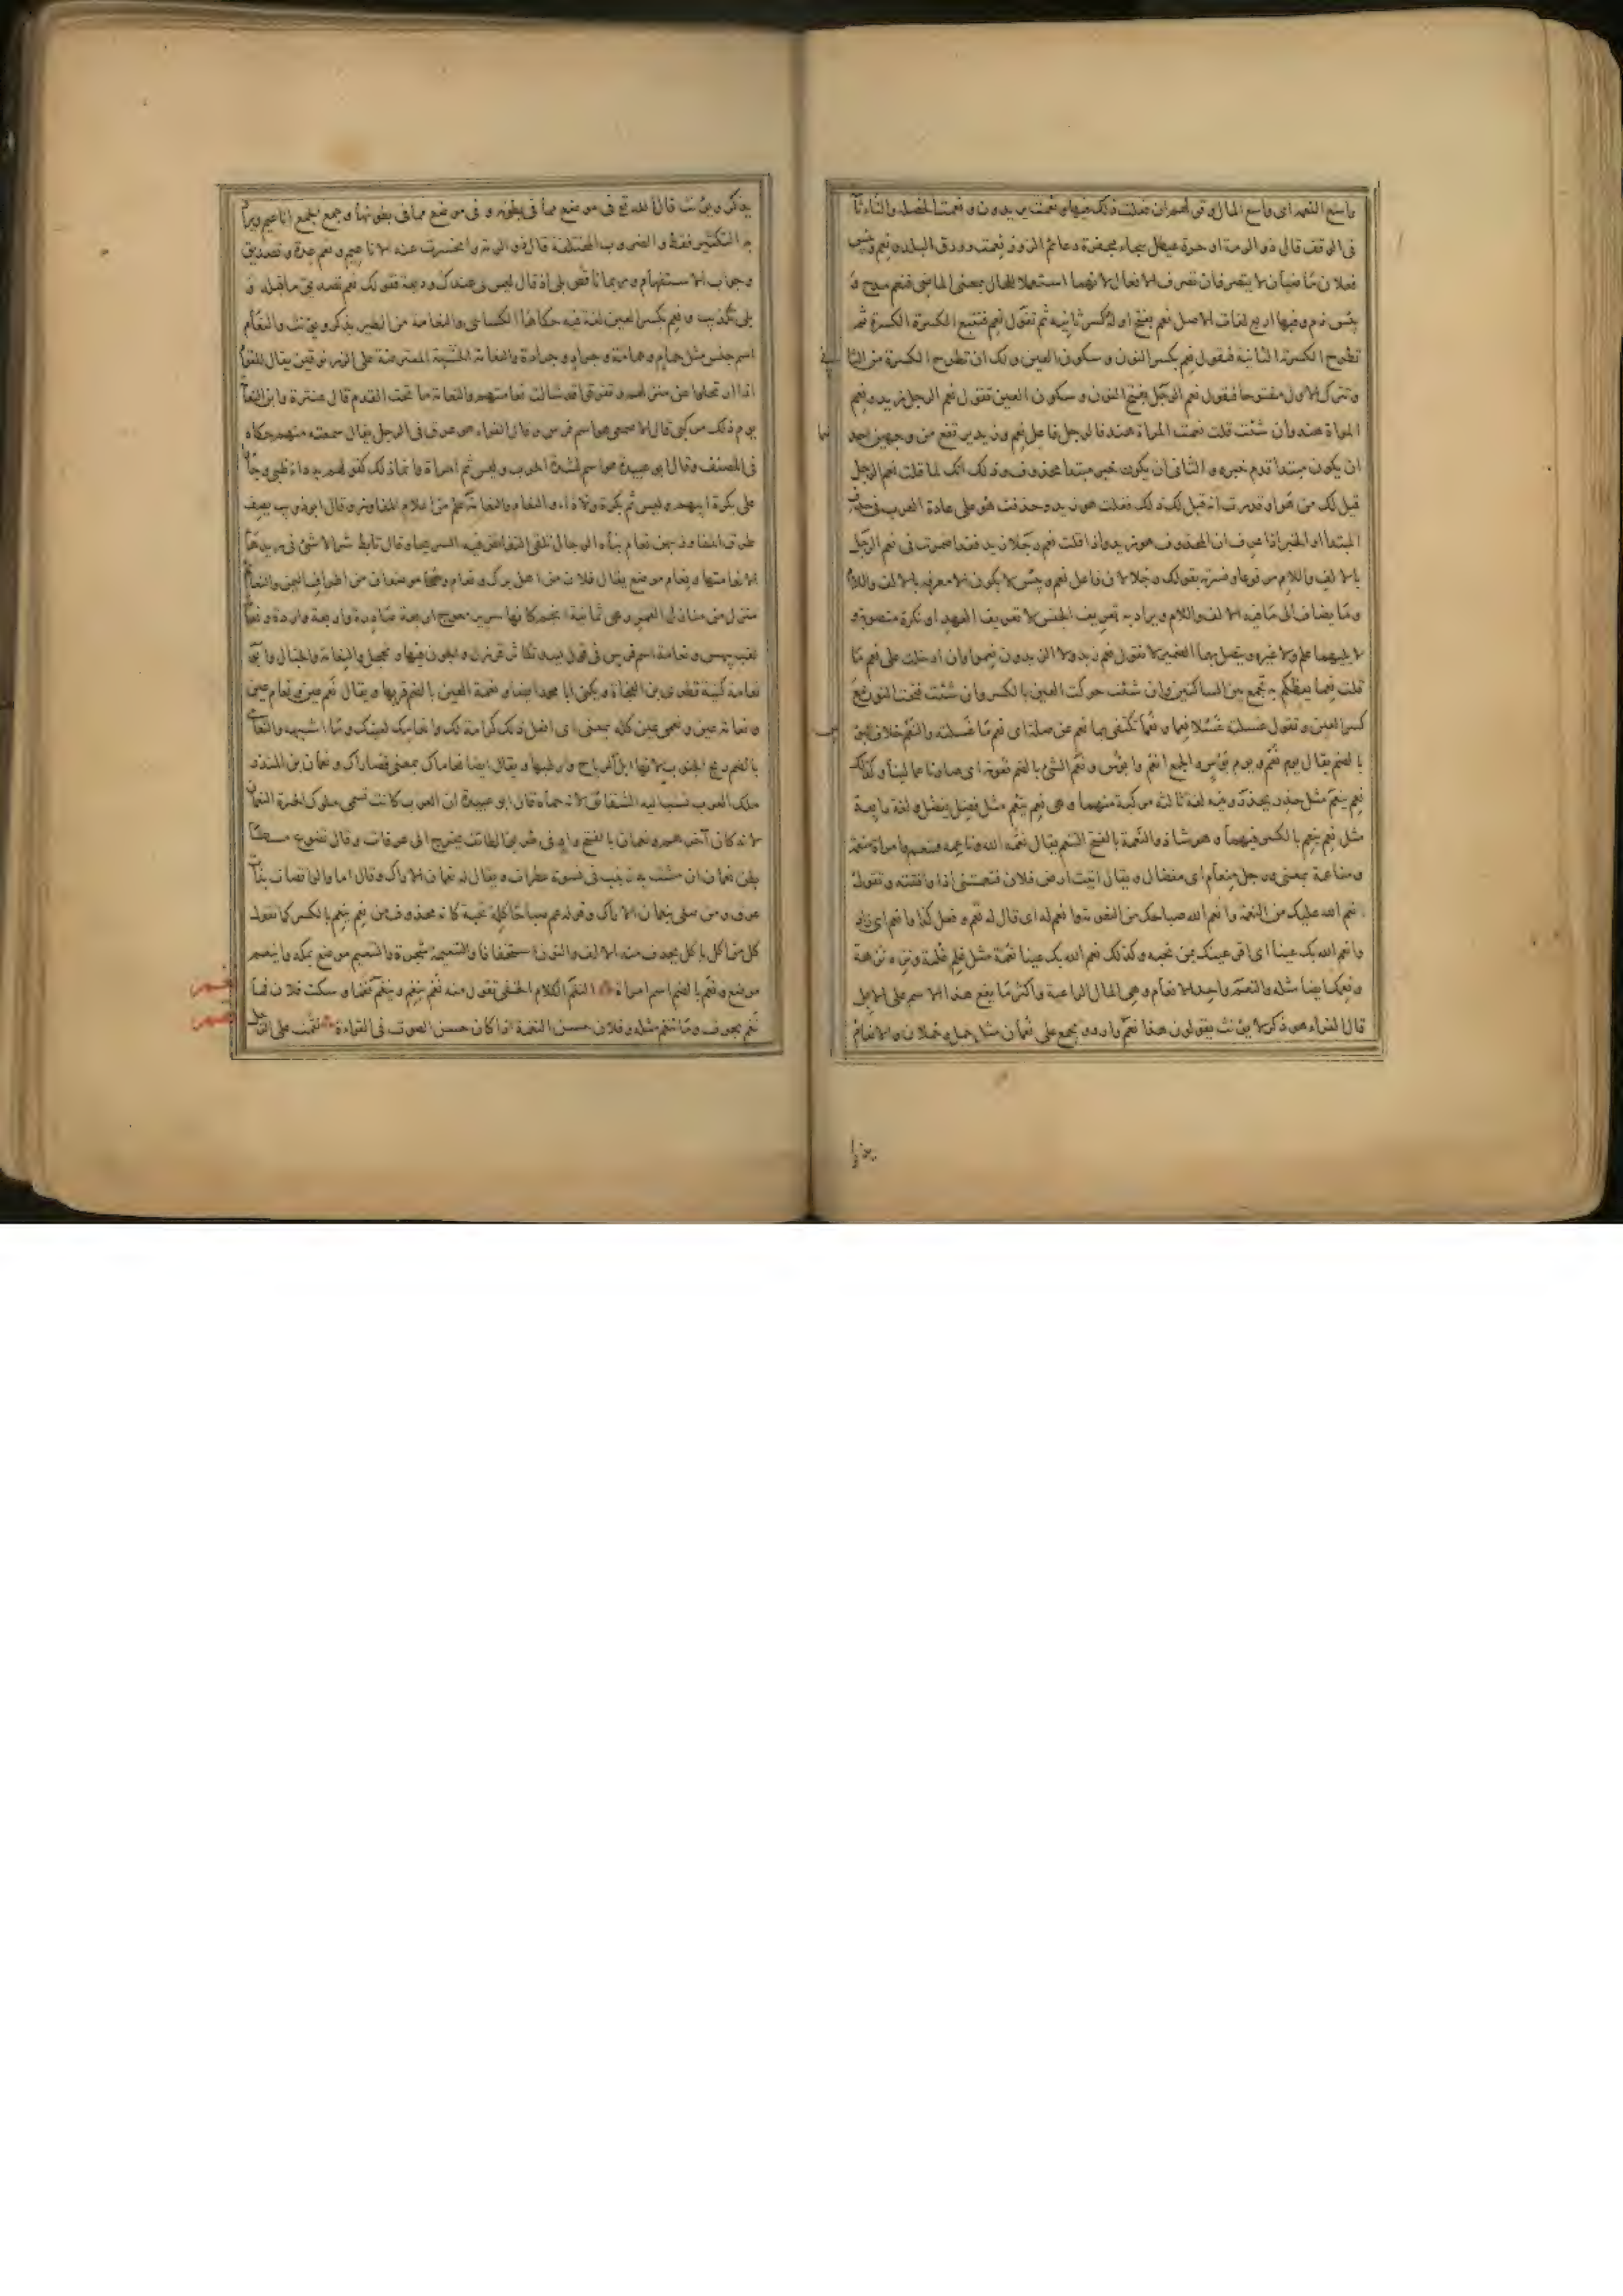 واسع النعمة اى واسع المال وقولهم ان فعلت ذلك فبها ونعمت يريدون ونعمت الخصلة والتاء ثا
فى الوقف قال ذو الرمة او حرة عيطل ثبجاء مجفرة دعائم الزور نعمت زورق البلد ونعم وبئس
فعلان ماضيان لا يتصرفان تصرف الافعال لانهما استعملا للحال بمعنى الماضى فنعم مدح و
بئس ذم وفيها اربع لغات الاصل نعم بفتح اوله وكسر ثانيه ثم تقول نعم فتتبع الكسرة الكسرة ثم
تطرح الكسرة الثانية فتقول نعم بكسر النون وسكون العين ولك ان تطرح الكسرة من الثا
وتترك الاول مفتوحا فتقول نعم الرجل بفتح النون وسكون العين فتقول نعم الرجل زيد ونعم
المراة هند وان شئت قلت نعمت المراة هند فالرجل فاعل نعم وزيد يرتفع من وجهين احد
ان يكون مبتدا قدم خبره والثانى ان يكون خبر مبتدا محذوف وذلك انك لما قلت نعم الرجل
قيل لك من هو او قدرت انه قيل لك ذلك فقلت هو زيد وحذفت هو على عادة العرب فى حذف
المبتدا او الخبر اذا عرف ان المحذوف هو زيد واذا قلت نعم رجلا زيد فقد اضمرت فى نعم الرجل
بالالف واللام مرفوعا وفسرته بقولك رجلا لان فاعل نعم وبئس لا يكون الا معرفة بالالف واللام
وما يضاف الى ما فيه الالف واللام ويراد به تعريف الجنس لا تعريف العهد او نكرة منصوبة و
لا يليهما علم ولا غيره ويتصل بهما الضمير لا تقول نعم زيد ولا الزيدون نعموا وان ادخلت على نعم ما
قلت نعما يعظكم به تجمع بين الساكنين وان شئت حركت العين بالكسر وان شئت فتحت النون مع
كسر العين وتقول غسلته غسلا نعما ونعما تكتفى بها نعم عن صلته اى نعم ما غسلته والنعم خلاف البؤ
بالضم يقال يوم نعم ويوم بؤس والجمع انعم وابؤس ونعم الشئ بالضم نعومة اى صار ناعما لينا وكذلك
نعم ينعم مثل حذر يحذر وفيه لغة ثالثة مركبة منهما وهى نعم ينعم مثل فضل يفضل ولغة رابعة
مثل نعم ينعم بالكسر فيهما وهو شاذ والنعمة بالفتح التنعم يقال نعمه الله وناعمه فتنعم وامراة منعمة
ومناعمة بمعنى ورجل منعام اى مفضال ويقال اتيت ارض فلان فتنعمتنى اذا وافقته وتقول
نعم الله عليك من النعمة وانعم الله صباحك من النعومة وانعم له اى قال له نعم وفعل كذا وانعم اى زاد
وانعم الله بك عينا اى اقر عينك بمن تحبه وكذلك نعم الله بك عينا نعمة مثل غلم غلمة ونزه نزهة
ونعمك ايضا مثله والنعم واحد الانعام وهى المال الراعية واكثر ما يقع هذا الاسم على الابل
قال الفراء هو ذكر لا يؤنث يقولون هذا نعم وارد ويجمع على نعمان مثل حمل وحملان والانعام
يذكر ويؤنث قال الله تع فى موضع مما فى بطونه و فى موضع مما فى بطونها وجمع الجمع اناعيم ويراد
به التكثير فقط والضروب المختلفة قال ذو الرمة وانحسرت عنه الاناعيم ونعم عدة وتصديق
وجواب الاستفهام وربما ناقض بلى اذ قال ليس لى عندك وديعة فقولك نعم تصديق ما قبله و
بلى تكذيب ونعم بكسر العين لغة فيه حكاها الكسائى والنعامة من الطير يذكر ويؤنث والنعام
اسم جنس مثل حمام وحمامة وجراد وجرادة والنعامة الخشبة المعترضة على الزرنوقين يقال للقو
اذا ارتحلوا عن منزلهم او تفرقوا قد شالت نعامتهم والنعامة ما تحت القدم قال عنترة وابن النعا
يوم ذلك مركبى قال الاصمعى هو اسم فرس وقال الفراء هو عرق فى الرجل يقال سمعته منهم حكاه
فى المصنف وقال ابو عبيدة هو اسم لشدة الحرب وليس ثم امراة وانما ذلك كقولهم به داء ظبى وجا
على بكرة ابيهم وليس ثم بكرة ولا داء والنعام والنعامة علم من اعلام المفاوز وقال ابو ذؤيب يصف
طرق المفاوز بهن نعام بناه الرجال تلقى النفائض فيه السريحا وقال تابط شرا لا شئ فى ريدها
الا نعامتها ونعام موضع يقال فلان من اهل برك ونعام وهما موضعان من اطراف اليمن والنعام
منزل من منازل القمر وهى ثمانية انجم كانها سرير معوج اربعة صادرة واربعة واردة ونعا
لقب بيهس ونعامة اسم فرس فى قول لبيد تكاثر قرزل والجون فيها وتحجل والنعامة والخبال وابو
نعامة كنية قطرى بن الفجاة ويكنى ابا محمد ايضا ونعمة العين بالضم قرتها ويقال نعم عين ونعام عين
ونعامة عين ونعمى عين كله بمعنى اى افعل ذلك كرامة لك وانعاما لعينك وما اشبهه والنعا
بالضم ريح الجنوب لانها ابل الرياح وارطبها ويقال ايضا نعاماك بمعنى قصاراك ونعمان بن المنذر
ملك العرب نسب اليه الشقائق لانه حماه قال ابو عبيدة ان العرب كانت تسمى ملوك الحيرة النعمان
لانه كان آخرهم ونعمان بالفتح واد فى طريق الطائف يخرج الى عرفات وقال تضوع مسكا
بطن نعمان ان مشت به زينب فى نسوة عطرات ويقال له نعمان الاراك وقال اما والراقصات بذا
عرق ومن صلى بنعمان الاراك وقولهم عم صباحا كلمة تحية كانه محذوف من نعم ينعم بالكسر كما تقول
كل من اكل ياكل يحذف منه الالف والنون استخفافا والتنعيمة شجرة والتنعيم موضع بمكة وانيعم
موضع ونعم بالضم اسم امراة النغم الكلام الخفى تقول منه نغم ينغم وينغم نغما وسكت فلان فما
نغم بحرف وما تنغم مثله وفلان حسن النغمة اذا كان حسن الصوت فى القراءة نقمت على الرجل